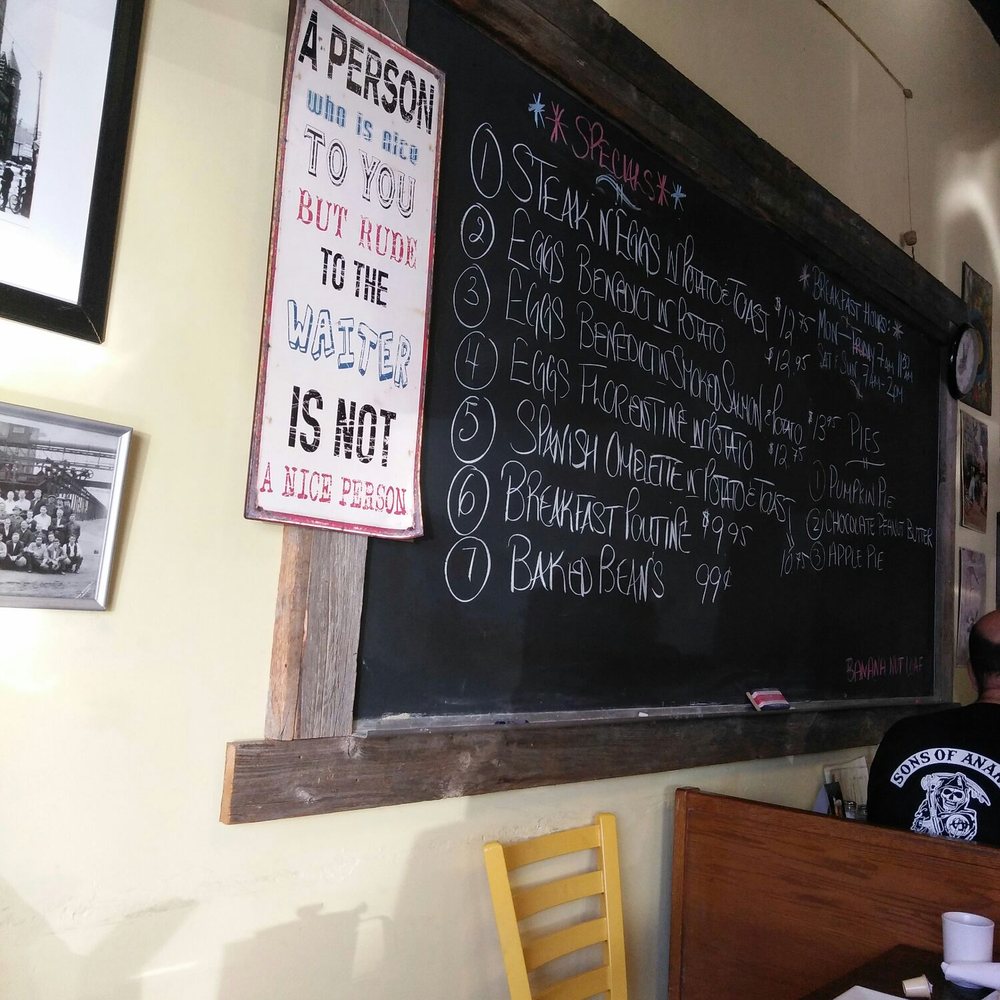 A PERSON
who is nice
TO YOU
BUT RUDE
TO THE
WAITER
IS NOT
A NICE PERSON
*SPECIALS*
1 STEAK N' EGGS W POTATO & TOAST $12.75
2 EGGS BENEDICT W POTATO $12.95
3 EGGS BENEDICT W SMOKED SALMON & POTATO $13.95
4 EGGS FLORENTINE W POTATO $12.75
5 SPANISH OMELETTE W POTATO & TOAST 10.75
6 BREAKFAST POUTINE $9.95
7 BAKED BEANS 99¢
*BREAKFAST HOURS:*
MON - FRIDAY 7AM
SAT & SUN 7AM-2PM
PIES
1 PUMPKIN PIE
2 CHOCOLATE PEANUT BUTTER
3 APPLE PIE
BANANA NUT LOAF
SONS OF ANAR